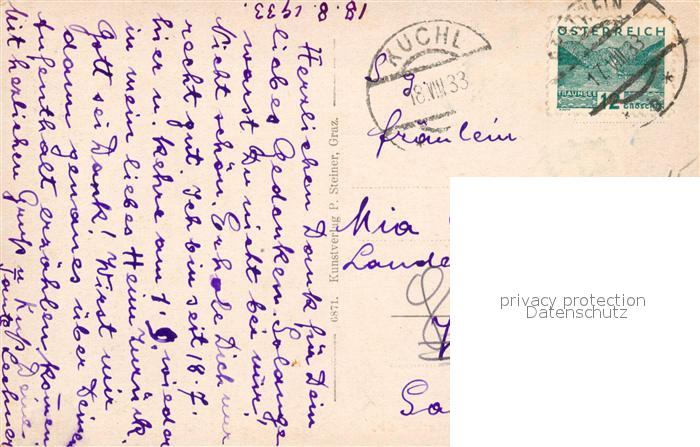 18.8.1933.
Herzlichen Dank für Dein
liebes Gedenken. Solange
warst Du nicht bei mir!
Nicht schön. Erhole Dich nur
recht gut. Ich bin seit 18.7.
hier u. kehre am 1. 9. wieder
in mein liebes Heim zurück.
Gott sei Dank! Wirst mir
dann genaues über Deinen
Aufenthalt erzählen können.
Mit herzlichen Gruß u. Kuß Deine
Tante
6871. Kunstverlag P. Steiner, Graz.
KUCHL
18.VIII.33
ÖSTERREICH
TRAUNSEE
12 GROSCHEN
17.VIII.33
S. g.
Fräulein
Mia
privacy protection
Datenschutz